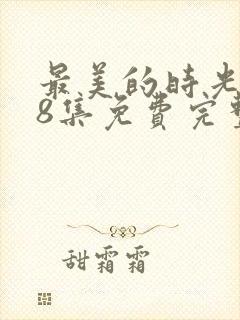 最美的时光
8集免费完整
甜霜霜